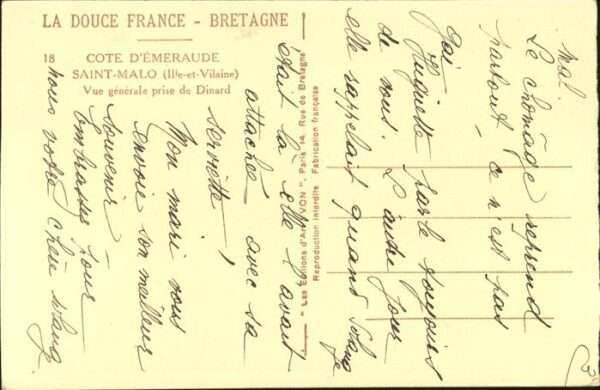 LA DOUCE FRANCE - BRETAGNE
18 COTE D'ÉMERAUDE
SAINT-MALO (Ille-et-Vilaine)
Vue générale prise de Dinard
"Les Editions d'Art YVON", Paris 14, Rue de Bretagne
Reproduction interdite Fabrication française
mal.
Le chômage reprend
partout, ce n'est pas
gai Huguette parle toujours
de vous. L'autre jour
elle rappelait quand Solange
était là elle l'avait
attaché avec sa
serviette!
Mon mari vous
envoie son meilleur
souvenir -
Embrasse pour
nous votre chère Solang